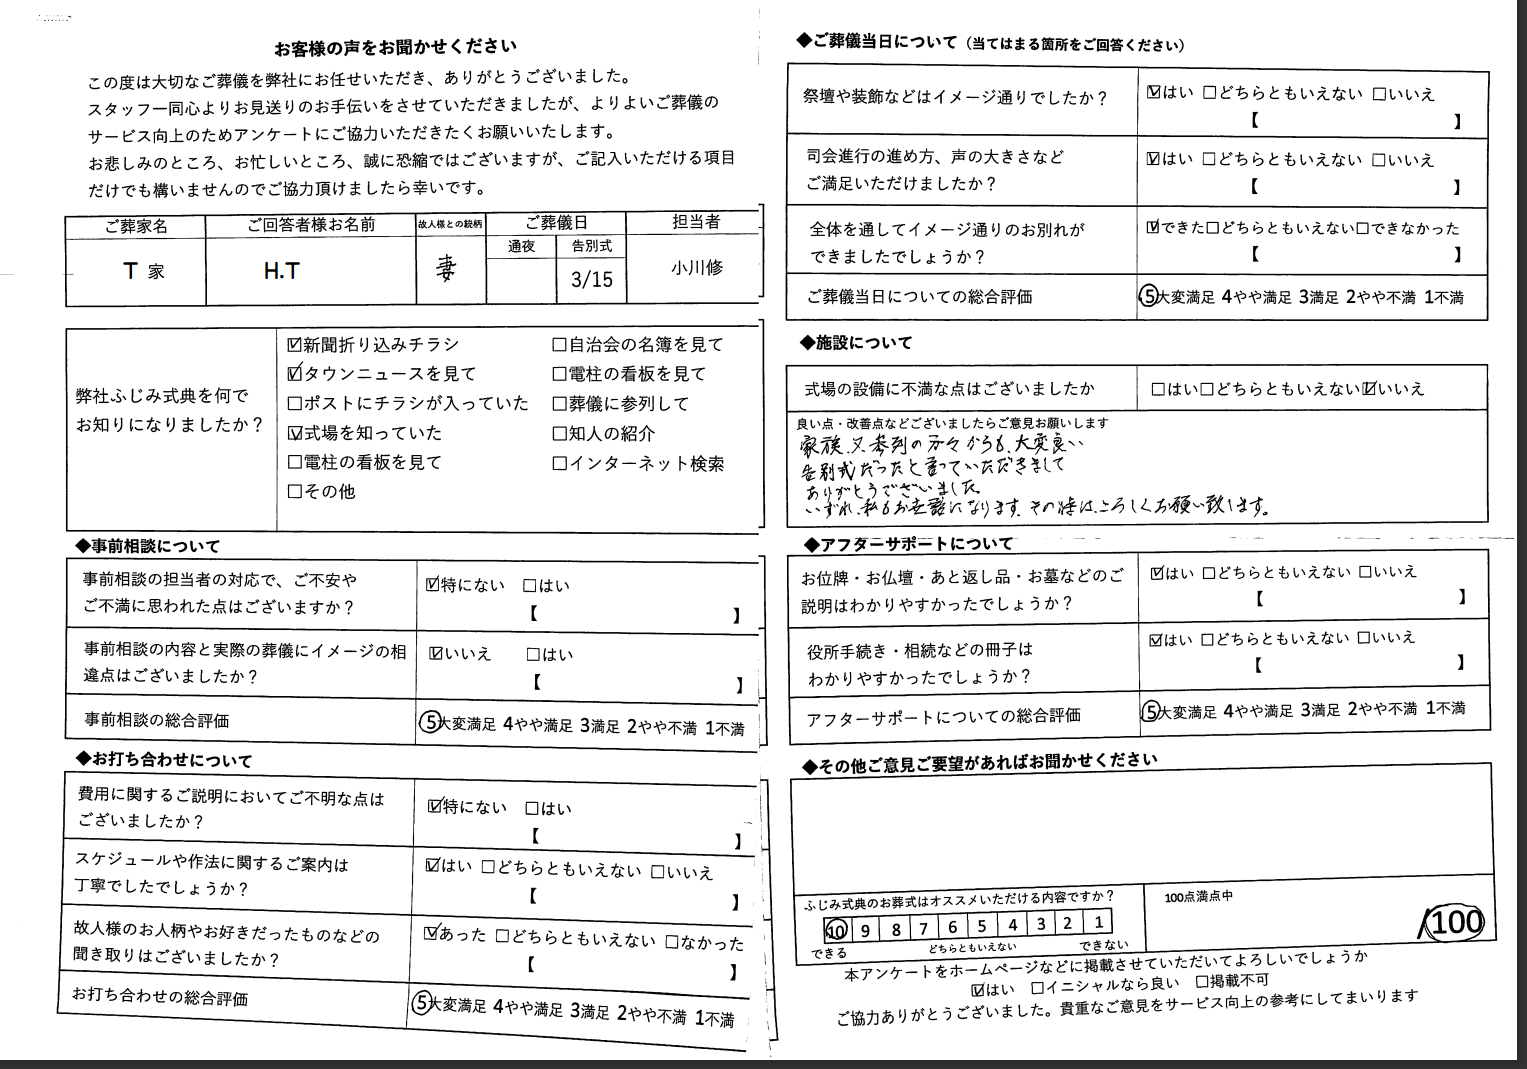 お客様の声をお聞かせください
この度は大切なご葬儀を弊社にお任せいただき、ありがとうございました。
スタッフ一同心よりお見送りのお手伝いをさせていただきましたが、よりよいご葬儀の
サービス向上のためアンケートにご協力いただきたくお願いいたします。
お悲しみのところ、お忙しいところ、誠に恐縮ではございますが、ご記入いただける項目
だけでも構いませんのでご協力頂けましたら幸いです。
ご葬家名 ご回答者様お名前 故人様との続柄 ご葬儀日 担当者
通夜 告別式
T 家 H.T 妻 3/15 小川修
弊社ふじみ式典を何で
お知りになりましたか？
☑新聞折り込みチラシ □自治会の名簿を見て
☑タウンニュースを見て □電柱の看板を見て
□ポストにチラシが入っていた □葬儀に参列して
☑式場を知っていた □知人の紹介
□電柱の看板を見て □インターネット検索
□その他
◆事前相談について
事前相談の担当者の対応で、ご不安や
ご不満に思われた点はございますか？
☑特にない □はい
【 】
事前相談の内容と実際の葬儀にイメージの相
違点はございましたか？
☑いいえ □はい
【 】
事前相談の総合評価 ⑤大変満足 4やや満足 3満足 2やや不満 1不満
◆お打ち合わせについて
費用に関するご説明においてご不明な点は
ございましたか？
☑特にない □はい
【 】
スケジュールや作法に関するご案内は
丁寧でしたでしょうか？
☑はい □どちらともいえない □いいえ
【 】
故人様のお人柄やお好きだったものなどの
聞き取りはございましたか？
☑あった □どちらともいえない □なかった
【 】
お打ち合わせの総合評価 ⑤大変満足 4やや満足 3満足 2やや不満 1不満
◆ご葬儀当日について（当てはまる箇所をご回答ください）
祭壇や装飾などはイメージ通りでしたか？ ☑はい □どちらともいえない □いいえ
【 】
司会進行の進め方、声の大きさなど
ご満足いただけましたか？
☑はい □どちらともいえない □いいえ
【 】
全体を通してイメージ通りのお別れが
できましたでしょうか？
☑できた□どちらともいえない□できなかった
【 】
ご葬儀当日についての総合評価 ⑤大変満足 4やや満足 3満足 2やや不満 1不満
◆施設について
式場の設備に不満な点はございましたか □はい□どちらともいえない☑いいえ
良い点・改善点などございましたらご意見お願いします
家族、又参列の方々からも、大変良い
告別式だったと言っていただきまして
ありがとうございました。
いずれ、私もお世話になります。その時は、よろしくお願い致します。
◆アフターサポートについて
お位牌・お仏壇・あと返し品・お墓などのご
説明はわかりやすかったでしょうか？
☑はい □どちらともいえない □いいえ
【 】
役所手続き・相続などの冊子は
わかりやすかったでしょうか？
☑はい □どちらともいえない □いいえ
【 】
アフターサポートについての総合評価 ⑤大変満足 4やや満足 3満足 2やや不満 1不満
◆その他ご意見ご要望があればお聞かせください
ふじみ式典のお葬式はオススメいただける内容ですか？
⑩ 9 8 7 6 5 4 3 2 1
できる どちらともいえない できない
100点満点中
/100
本アンケートをホームページなどに掲載させていただいてよろしいでしょうか
☑はい □イニシャルなら良い □掲載不可
ご協力ありがとうございました。貴重なご意見をサービス向上の参考にしてまいります